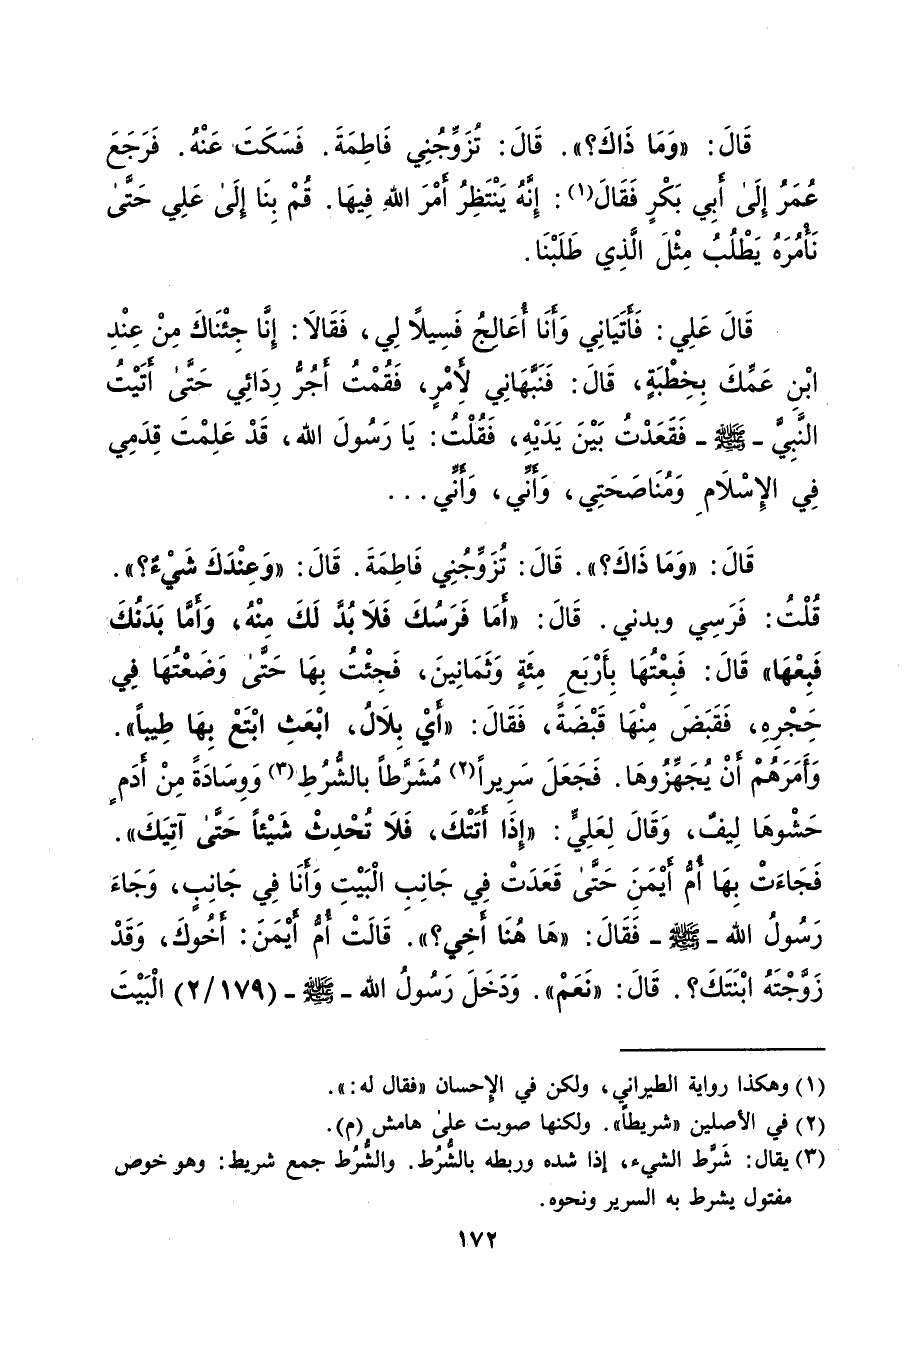 قَالَ: «وَمَا ذَاكَ؟». قَالَ: تُزَوِّجُنِي فَاطِمَةَ. فَسَكَتَ عَنْهُ. فَرَجَعَ
عُمَرُ إِلَىٰ أَبِي بَكْرٍ فَقَالَ(١): إِنَّهُ يَنْتَظِرُ أَمْرَ اللهِ فِيهَا. قُمْ بِنَا إِلَىٰ عَلِي حَتَّىٰ
نَأْمُرَهُ يَطْلُبُ مِثْلَ الَّذِي طَلَبْنَا.
قَالَ عَلِي: فَأَتَيَانِي وَأَنَا أُعَالِجُ فَسِيلًا لِي، فَقَالَا: إِنَّا جِئْنَاكَ مِنْ عِنْدِ
ابْنِ عَمِّكَ بِخِطْبَةٍ، قَالَ: فَنَبَّهَانِي لأَمْرٍ، فَقُمْتُ أَجُرُّ رِدَائِي حَتَّىٰ أَتَيْتُ
النَّبِيَّ ـ ﷺ ـ فَقَعَدْتُ بَيْنَ يَدَيْهِ، فَقُلْتُ: يَا رَسُولَ الله، قَدْ عَلِمْتَ قِدَمِي
فِي الإِسْلَامِ وَمُنَاصَحَتِي، وَأَنِّي، وَأَنِّي...
قَالَ: «وَمَا ذَاكَ؟». قَالَ: تُزَوِّجُنِي فَاطِمَةَ. قَالَ: «وَعِنْدَكَ شَيْءٌ؟».
قُلْتُ: فَرَسِي وبدني. قَالَ: «أَمَا فَرَسُكَ فَلَا بُدَّ لَكَ مِنْهُ، وَأَمَّا بَدَنُكَ
فَبِعْهَا» قَالَ: فَبِعْتُهَا بِأَرْبَعِ مِئَةٍ وَثَمَانِينَ، فَجِئْتُ بِهَا حَتَّىٰ وَضَعْتُهَا فِي
حَجْرِهِ، فَقَبَضَ مِنْهَا قَبْضَةً، فَقَالَ: «أَيْ بِلَالُ، ابْعَثِ ابْتَعْ بِهَا طِيباً».
وَأَمَرَهُمْ أَنْ يُجَهِّزُوهَا. فَجَعَلَ سَرِيراً(٢) مُشَرَّطاً بالشُّرُطِ(٣) وَوِسَادَةً مِنْ أَدَمٍ
حَشْوهَا لِيفٌ، وَقَالَ لِعَلِيٍّ: «إِذَا أَتَتْكَ، فَلَا تُحْدِثْ شَيْئاً حَتَّىٰ آتِيَكَ».
فَجَاءَتْ بِهَا أُمُّ أَيْمَنَ حَتَّىٰ قَعَدَتْ فِي جَانِبِ الْبَيْتِ وَأَنَا فِي جَانِبٍ، وَجَاءَ
رَسُولُ الله ـ ﷺ ـ فَقَالَ: «هَا هُنَا أَخِي؟». قَالَتْ أُمُّ أَيْمَنَ: أَخُوكَ، وَقَدْ
زَوَّجْتَهُ ابْنَتَكَ؟. قَالَ: «نَعَمْ». وَدَخَلَ رَسُولُ الله ـ ﷺ ـ (٢/١٧٩) الْبَيْتَ
(١) وهكذا رواية الطبراني، ولكن في الإحسان «فقال له:».
(٢) في الأصلين «شريطاً». ولكنها صوبت علىٰ هامش (م).
(٣) يقال: شَرَّط الشيء، إذا شده وربطه بالشُّرُط. والشُّرُط جمع شريط: وهو خوص
مفتول يشرط به السرير ونحوه.
١٧٢